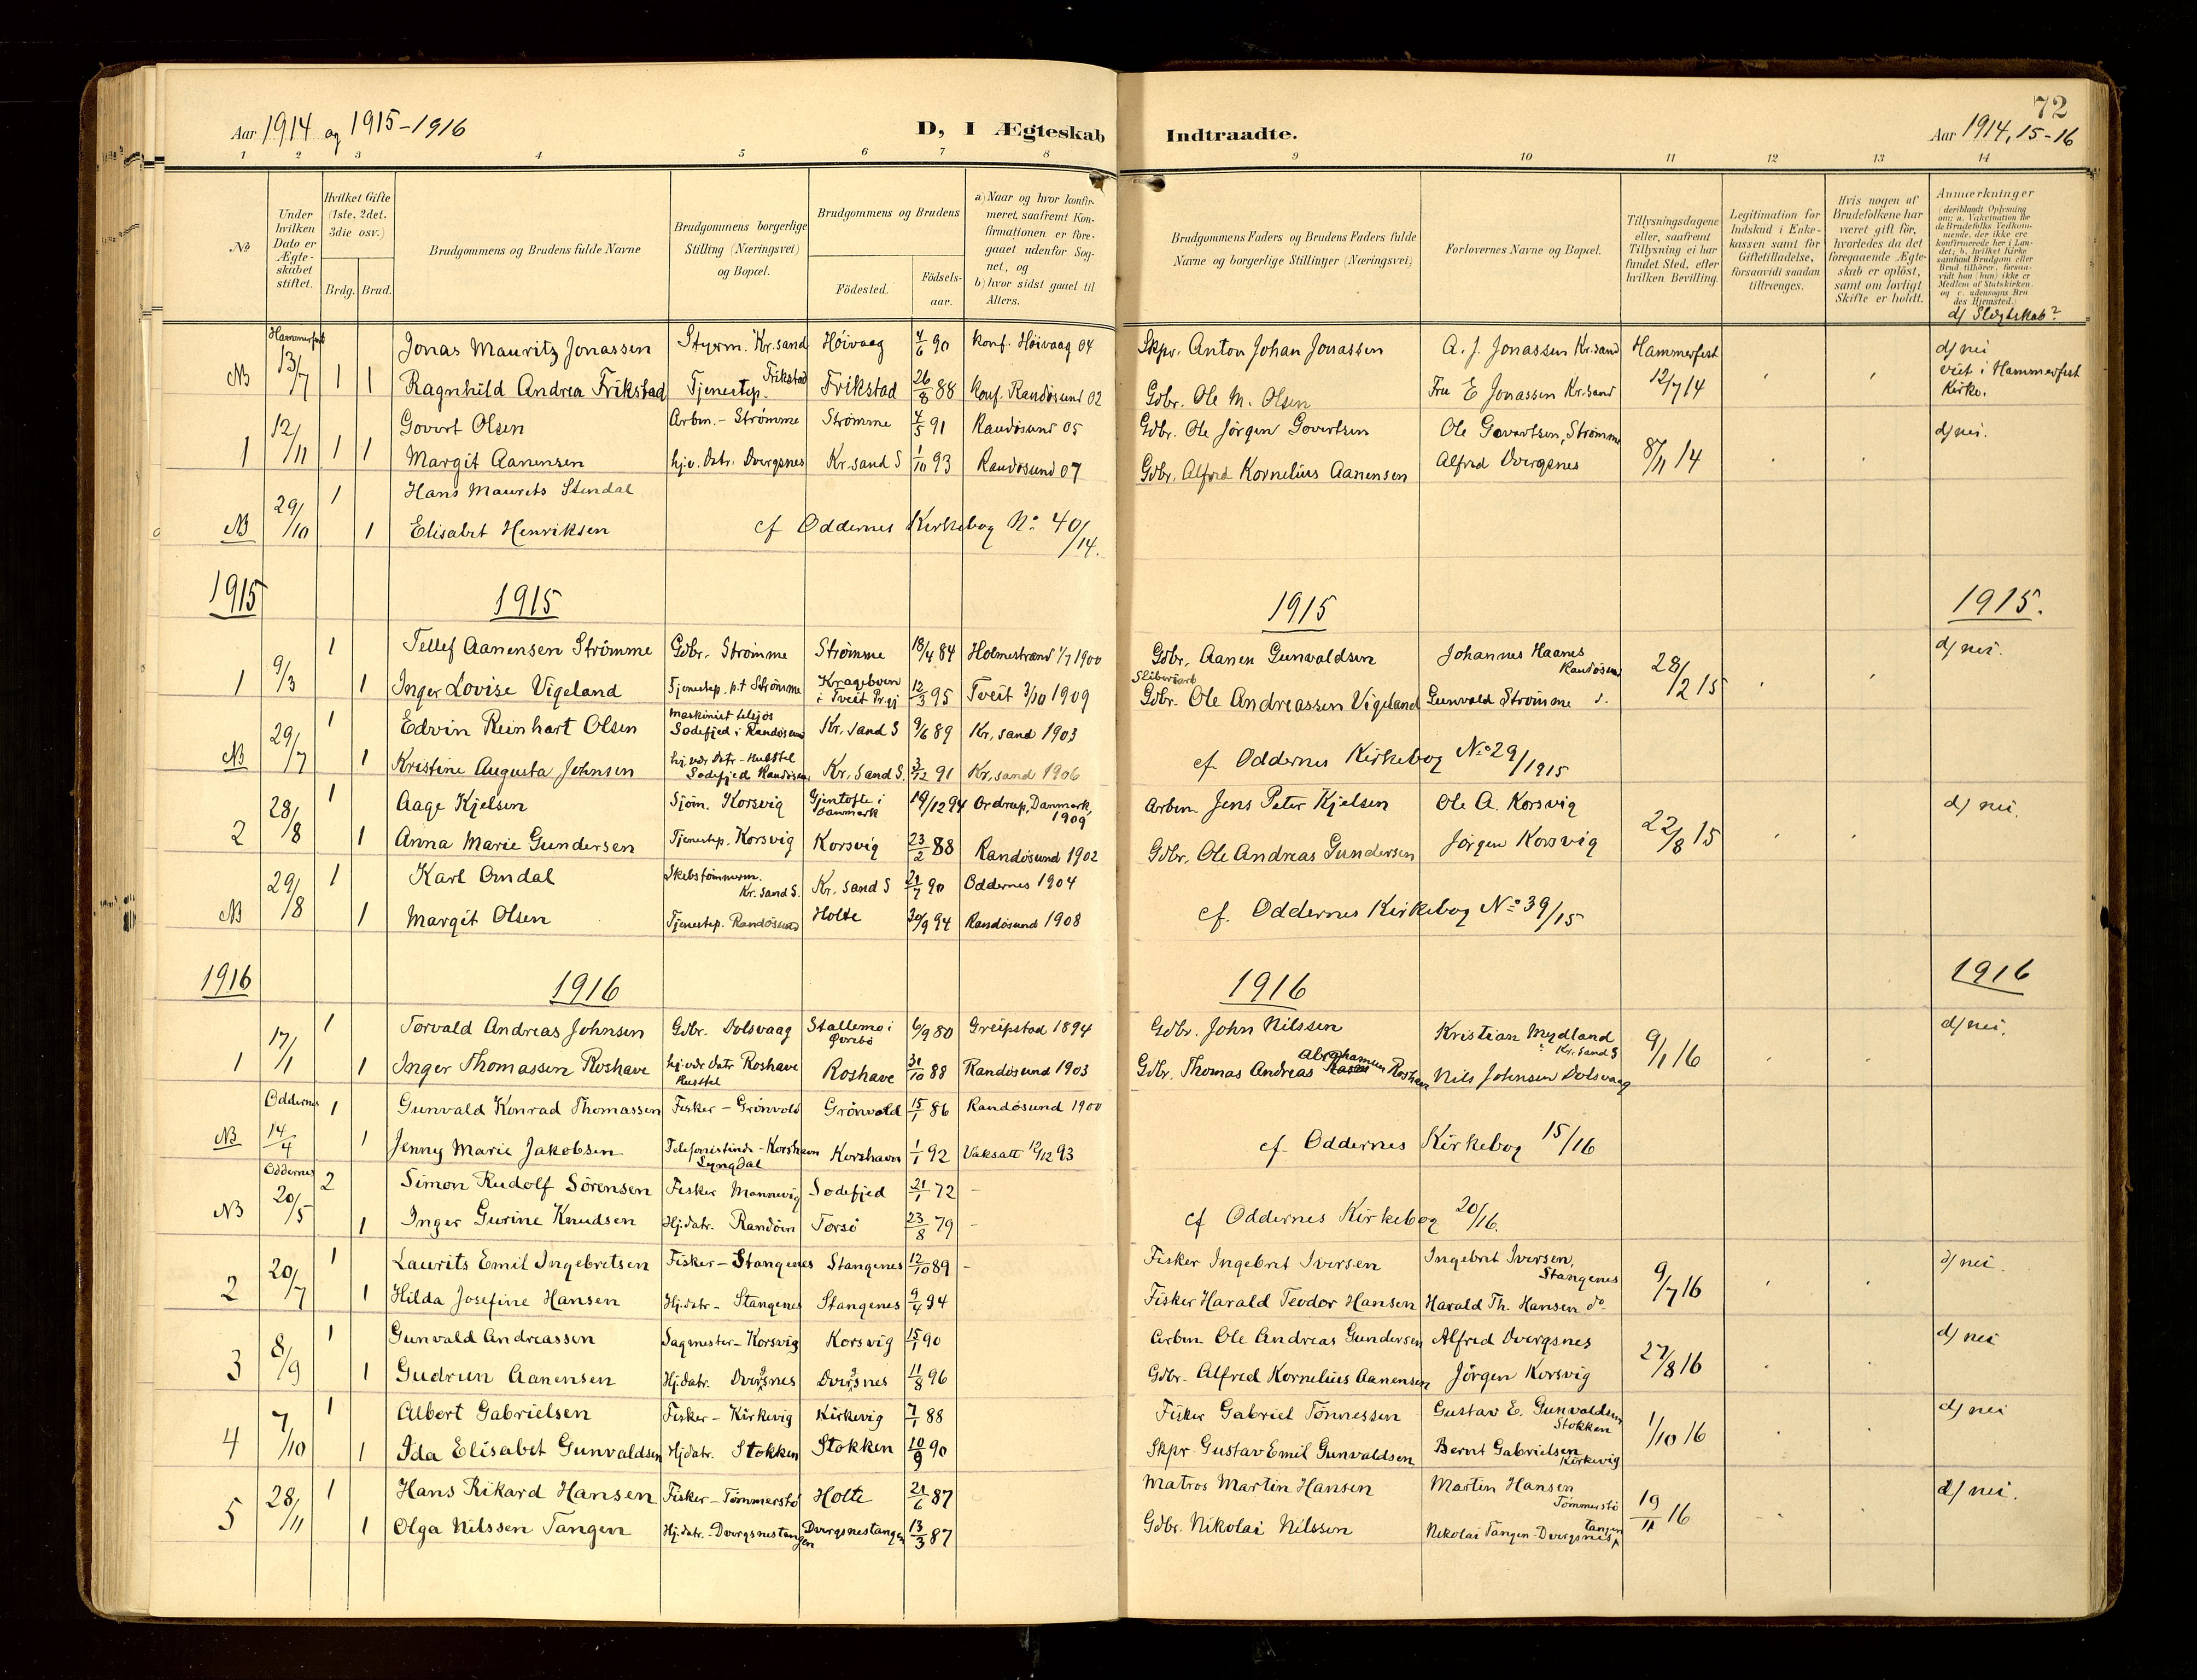 72
Aar 1914 og 1915-1916
D, I Ægteskab Indtraadte.
Aar 1914, 15-16
1 2 3 4 5 6 7 8 9 10 11 12 13 14
No
Under hvilken Dato er Ægteskabet stiftet.
Hvilket Gifte (1ste, 2det, 3die osv.)
Brdg. Brud.
Brudgommens og Brudens fulde Navne
Brudgommens borgerlige Stilling (Næringsvei) og Bopæl.
Brudgommens og Brudens
Födested.
Födselsaar.
a) Naar og hvor konfirmeret, saafremt Konfirmationen er foregaaet udenfor Sognet, og
b) hvor sidst gaaet til Alters.
Brudgommens Faders og Brudens Faders fulde Navne og borgerlige Stillinger (Næringsvei)
Forlovernes Navne og Bopæl.
Tillysningsdagene eller, saafremt Tillysning ei har fundet Sted, efter hvilken Bevilling.
Legitimation for Indskud i Enkekassen samt for Giftetilladelse, forsaavidt saadan tiltrænges.
Hvis nogen af Brudefolkene har været gift för, hvorledes da det foregaaende Ægteskab er oplöst, samt om lovligt Skifte er holdt.
Anmærkninger
d) Slægtskab?
Hammerfest
NB 13/7 1 Jonas Mauritz Jonassen Styrm. Kr.sand Höivaag 4/6 90 Konf. Höivaag 04 Skpr. Anton Johan Jonassen A. J. Jonassen Kr.sand Hammerfest 12/7 14 d) nei viet i Hammerfest Kirke.
1 Ragnhild Andrea Frikstad Tjenestep. Frikstad Frikstad 26/8 88 Konf. Randösund 02 Gdbr. Ole M. Olsen Fru E Jonassen Kr.sand
1 12/11 1 Govert Olsen Arbm. - Strömme Strömme 4/5 91 Randösund 05 Gdbr. Ole Jörgen Govertsen Ole Govertsen, Strömme 8/11 14 d) nei.
1 Margit Aanensen hj.v. Datr. Dvergsnes Kr.sand S 1/10 93 Randösund 07 Gdbr. Alfred Kornelius Aanensen Alfred Dvergsnes
NB 29/10 1 Hans Maurits Stendal
1 Elisabet Henriksen cf Oddernes Kirkebog No 40/14.
1915 1915 1915 1915.
1 9/3 1 Tellef Aanensen Strömme Gdbr. Strömme Strömme 18/4 84 Holmestrand 1/7 1900 Gdbr. Aanen Gunvaldsen Johannes Haanes Randösund 28/2 15 d) nei.
1 Inger Lovise Vigeland Tjenestep. p.t Strömme Krageboen i Tveit Prgj 12/3 95 Tveit 3/10 1909 Gdbr. Ole Andreassen Vigeland Gunvald Strömme
NB 29/7 1 Edvin Reinhart Olsen Maskinist tilsjös Sodefjed i Randösund Kr.sand S 9/6 89 Kr.sand 1903
1 Kristine Augusta Johnsen hj.vær Datr - Husstel Sodefjed Randösund Kr.sand S. 3/12 91 Kr.sand 1906 cf. Oddernes Kirkebog No 29/1915
2 28/8 1 Aage Kjelsen Sjöm. Korsvig Gjentofte i Danmark 19/12 94 Ordrup, Danmark, 1909 Arbm. Jens Peter Kjelsen Ole A. Korsvig 22/8 15 d) nei.
1 Anna Marie Gundersen Tjenestep. Korsvig Korsvig 23/2 88 Randösund 1902 Gdbr. Ole Andreas Gundersen Jörgen Korsvig
NB 29/8 1 Karl Omdal Skibstömmerm. Kr.sand S. Kr.sand S 21/7 90 Oddernes 1904
1 Margit Olsen Tjenestep. Randösund Holte 30/9 94 Randösund 1908 cf. Oddernes Kirkebog No 39/15
1916 1916 1916 1916
1 17/1 1 Torvald Andreas Johnsen Gdbr. Dolsvaag Stallemo i Övrebö 6/9 80 Greipstad 1894 Gdbr. John Nilssen Kristian Mydland Kr.sand S 9/1 16 d) nei.
1 Inger Thomassen Roshave hj.vær Datr Roshave Husstel Roshave 31/10 88 Randösund 1903 Gdbr. Thomas Andreas Abrahamsen Roshave Nils Johnsen Dolsvaag
Oddernes
NB 14/4 1 Gunvald Konrad Thomassen Fisker - Grönvold Grönvold 15/1 86 Randösund 1900
1 Jenny Marie Jakobsen Telefonistinde - Korshavn Lyngdal Korshavn 1/1 92 Vaksatt 12/12 93 cf. Oddernes Kirkebog 15/16
Oddernes
NB 20/5 2 Simon Rudolf Sörensen Fisker Mannevig Sodefjed 21/1 72 -
1 Inger Gurine Knudsen Hj.datr. Randöen Torsö 23/8 79 - cf Oddernes Kirkebog 20/16.
2 20/7 1 Laurits Emil Ingebretsen Fisker - Stangenes Stangenes 12/10 89 - Fisker Ingebret Iversen Ingebret Iversen, Stangenes 9/7 16 d) nei.
1 Hilda Josefine Hansen Hj.datr - Stangenes Stangenes 9/4 94 Fisker Harald Teodor Hansen Harald Th. Hansen do
3 8/9 1 Gunvald Andreassen Sagmester - Korsvig Korsvig 15/1 90 Arbm Ole Andreas Gundersen Alfred Dvergsnes 27/8 16 d) nei
1 Gudrun Aanensen Hj.datr. Dvergsnes Dvergsnes 11/8 96 Gdbr. Alfred Kornelius Aanensen Jörgen Korsvig
4 7/10 1 Albert Gabrielsen Fisker - Kirkevig Kirkevig 7/1 88 Fisker Gabriel Tönnessen Gustav E. Gunvaldsen Stokken 1/10 16 d) nei
1 Ida Elisabet Gunvaldsen Hj.datr. Stokken Stokken 10/9 90 Skpr Gustav Emil Gunvaldsen Berent Gabrielsen Kirkevig
5 28/11 1 Hans Rikard Hansen Fisker - Tömmerstö Holte 21/6 87 Matros Martin Hansen Martin Hansen Tömmerstö 19/11 16 d) nei.
1 Olga Nilssen Tangen Hj.datr. - Dvergsnestangen Dvergsnestangen 13/3 87 Gdbr. Nikolai Nilssen Nikolai Tangen - Dvergsnestangen